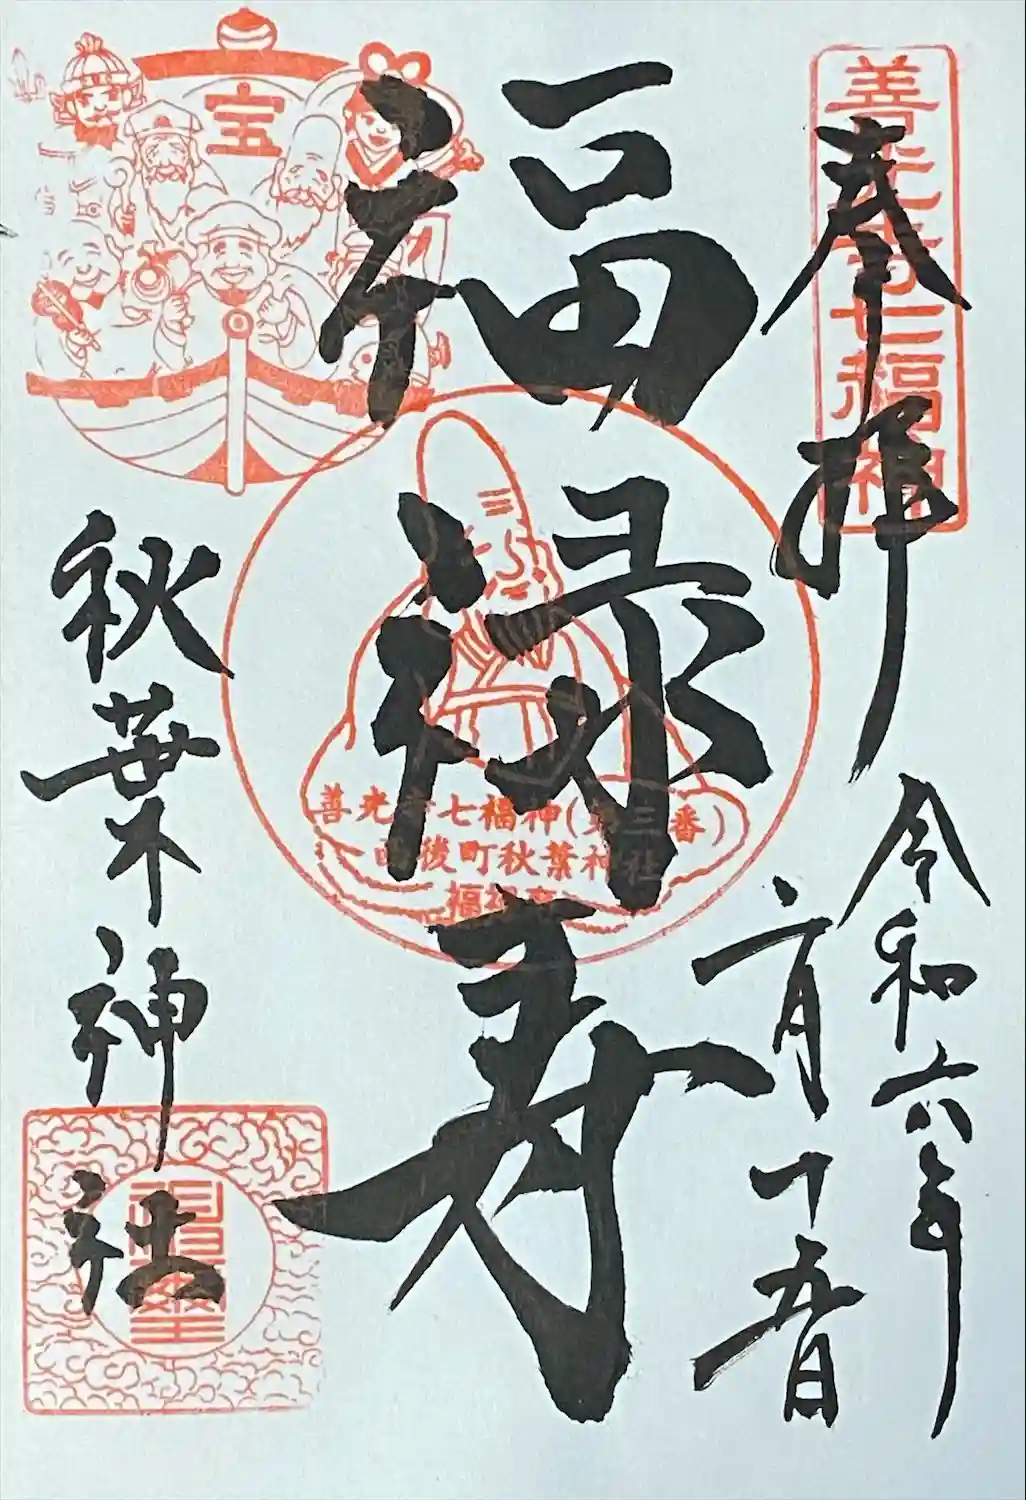 善光寺七福神
奉拝
令和六年
二月十五日
福禄寿
宝
善光寺七福神(第三番)
西後町秋葉神社
福禄寿
秋葉神社